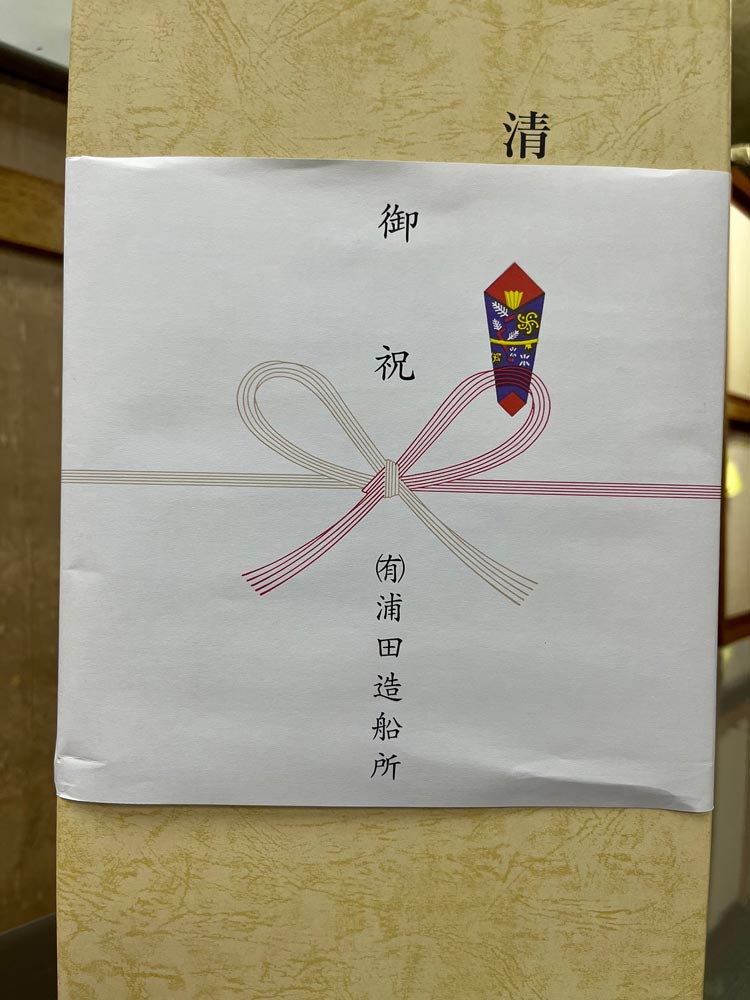 清
御祝
㈲浦田造船所